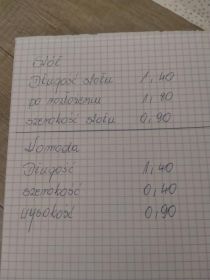 Stół
Długość stołu 1,40
po rozłożeniu 1,80
szerokość stołu 0,90
Komoda
Długość 1,40
szerokość 0,40
wysokość 0,90